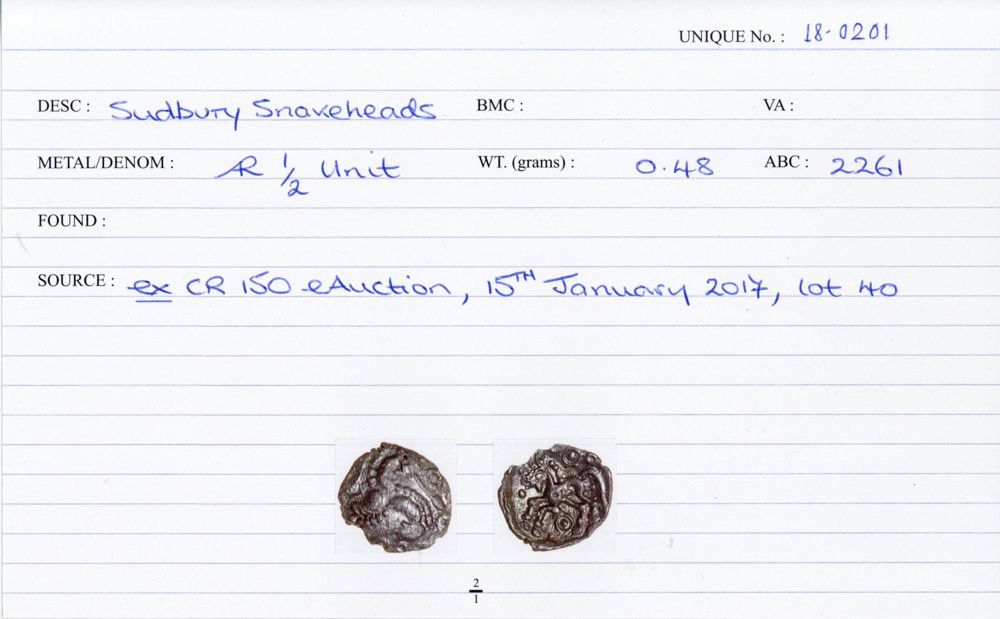 UNIQUE No. : 18-0201
DESC : Sudbury Snakeheads BMC : VA :
METAL/DENOM : AR 1/2 Unit WT. (grams) : 0.48 ABC : 2261
FOUND :
SOURCE : ex CR 150 eAuction, 15TH January 2017, lot 40
2
1